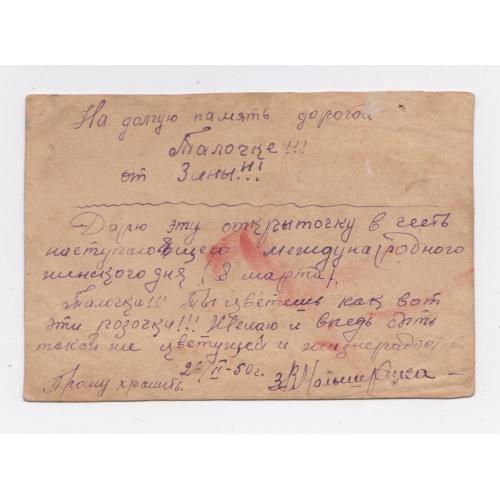 На долгую память дорогой
Талочке!!!
от Зины!!!
Дарю эту открыточку в честь
наступающего международного
женского дня (8 марта).
Талочка!!! Ты цветешь как вот
эти розочки!!! Желаю и впедь быть
такой же цветущей и
II-50г.
Прошу хранить.